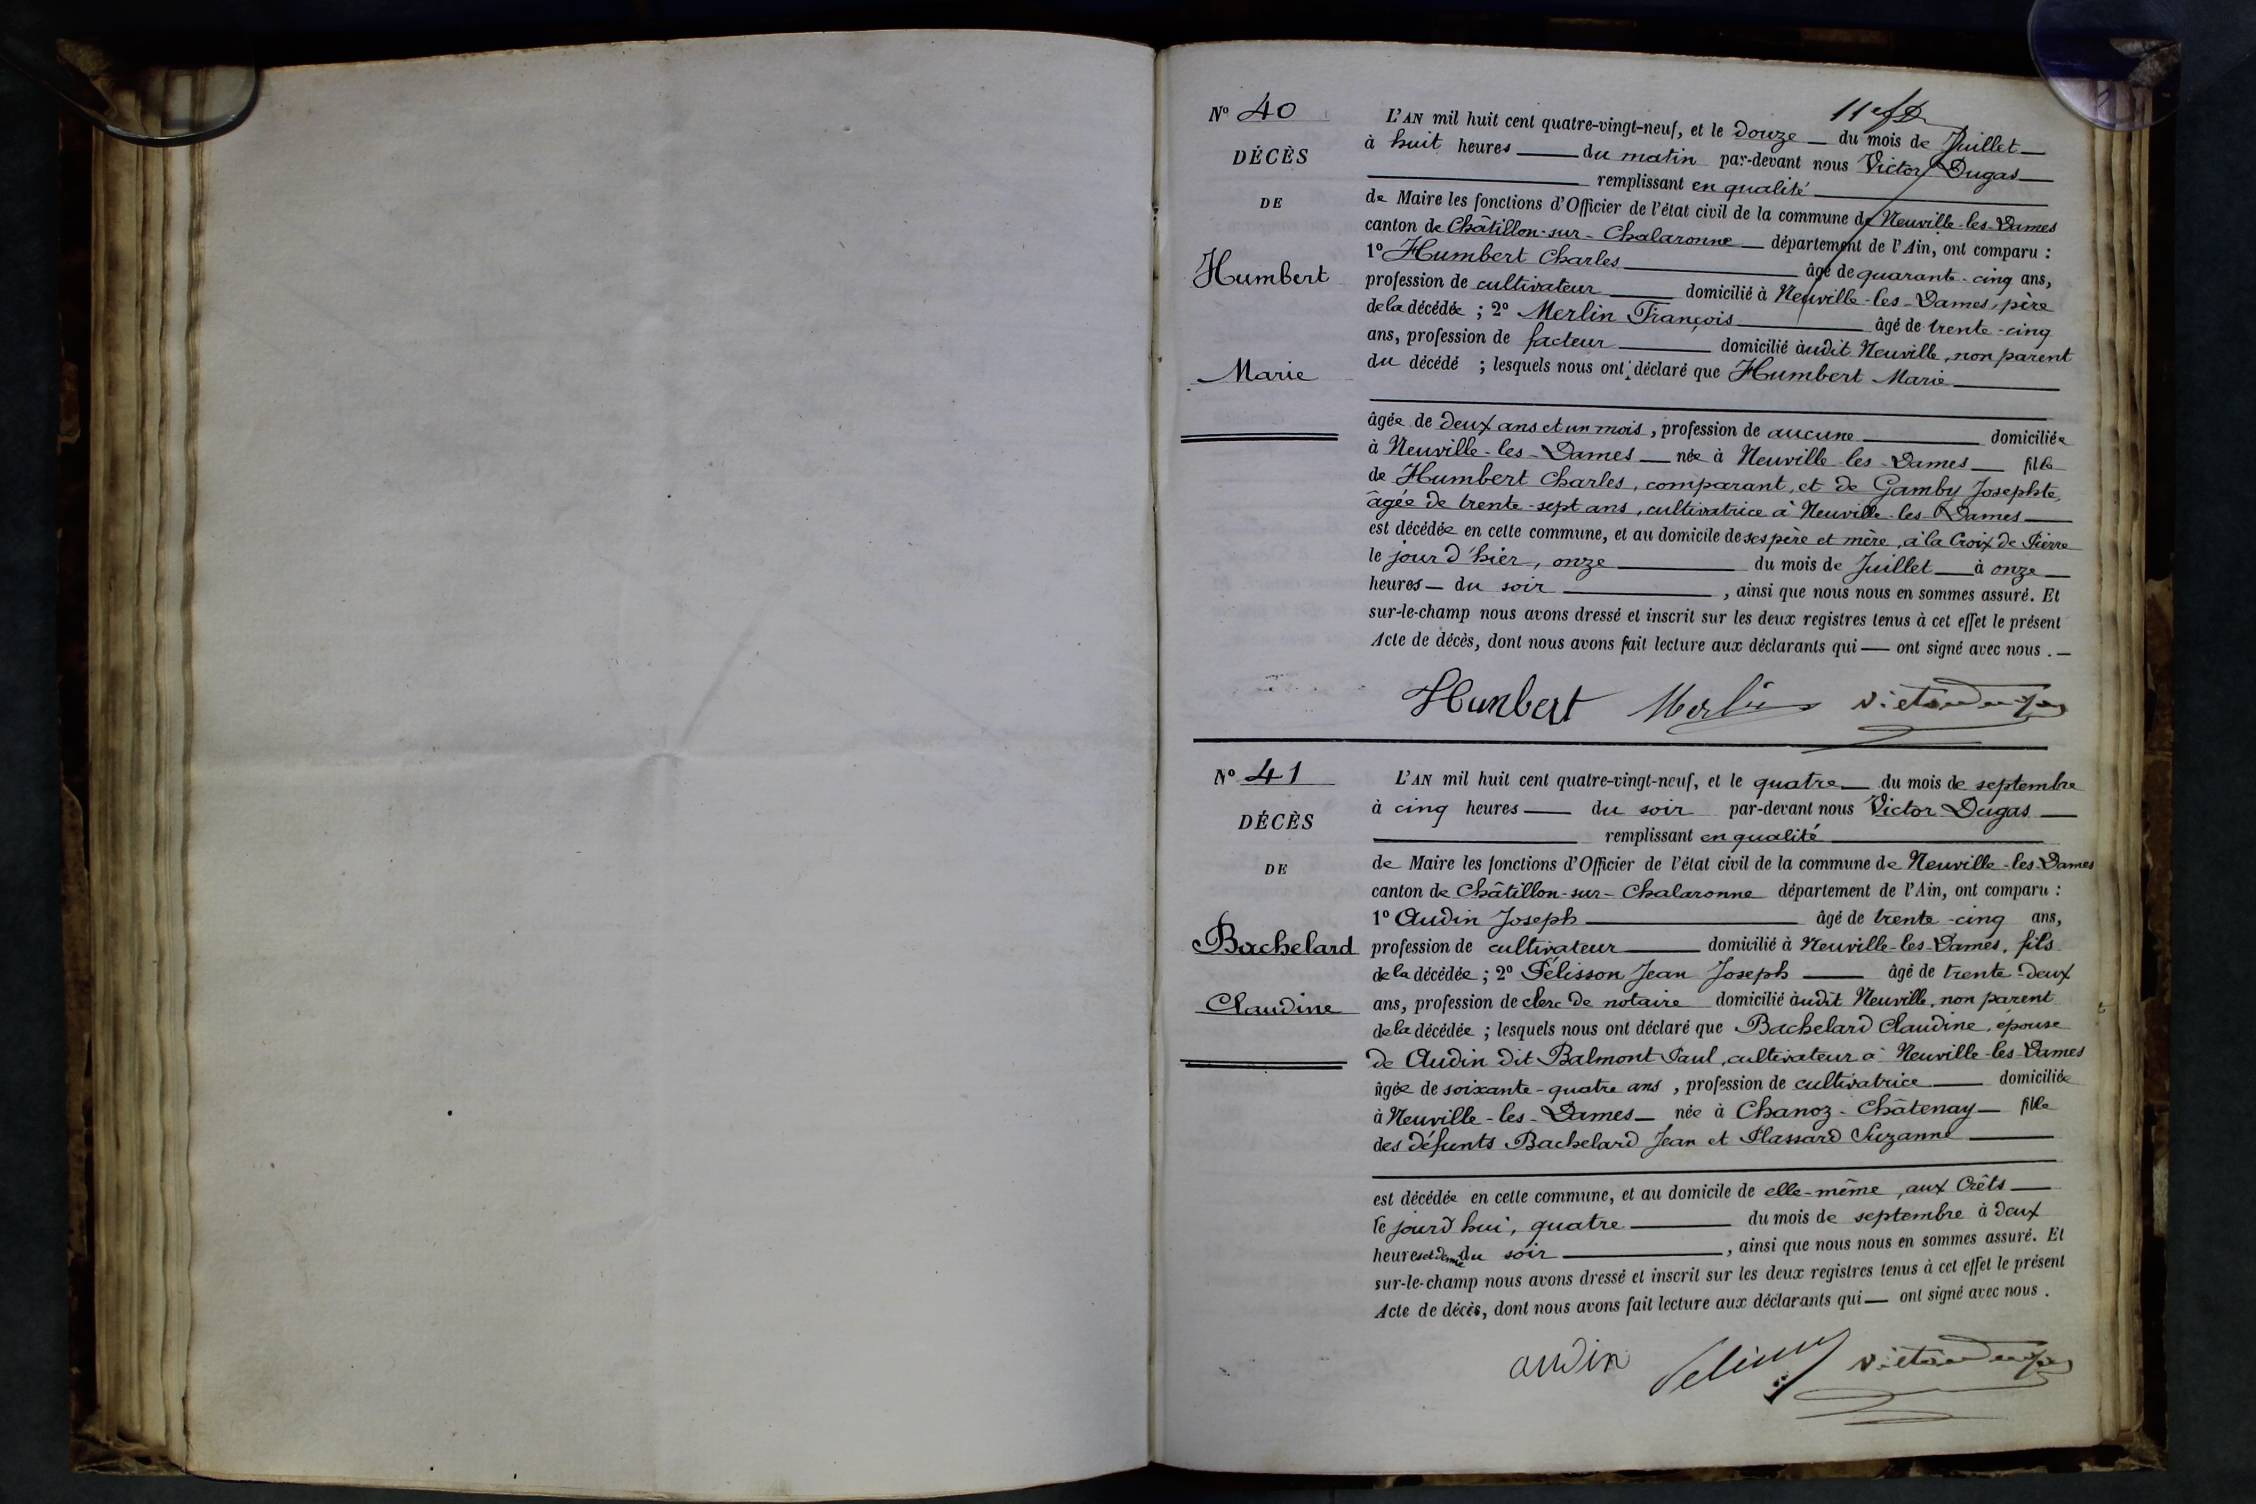 N° 40
DÉCÈS
DE
Humbert
Marie
L'AN mil huit cent quatre-vingt-neuf, et le douze du mois de Juillet
à huit heures du matin par-devant nous Victor Dugas
remplissant en qualité
de Maire les fonctions d'Officier de l'état civil de la commune de Neuville-les-Dames
canton de Châtillon-sur-Chalaronne département de l'Ain, ont comparu :
1° Humbert Charles âgé de quarante-cinq ans,
profession de cultivateur domicilié à Neuville-les-Dames, père
de la décédée ; 2° Merlin François âgé de trente-cinq
ans, profession de facteur domicilié audit Neuville, non parent
du décédé ; lesquels nous ont déclaré que Humbert Marie
âgée de deux ans et un mois, profession de aucune domiciliée
à Neuville-les-Dames née à Neuville-les-Dames fille
de Humbert Charles, comparant, et de Gamby Josephte,
âgée de trente-sept ans, cultivatrice à Neuville-les-Dames
est décédée en cette commune, et au domicile de ses père et mère, à la Croix de Pierre
le jour d'hier, onze du mois de Juillet à onze
heures du soir , ainsi que nous nous en sommes assuré. Et
sur-le-champ nous avons dressé et inscrit sur les deux registres tenus à cet effet le présent
Acte de décès, dont nous avons fait lecture aux déclarants qui ont signé avec nous.
Humbert Merlin Victor Dugas
N° 41
DÉCÈS
DE
Bachelard
Claudine
L'AN mil huit cent quatre-vingt-neuf, et le quatre du mois de septembre
à cinq heures du soir par-devant nous Victor Dugas
remplissant en qualité
de Maire les fonctions d'Officier de l'état civil de la commune de Neuville-les-Dames
canton de Châtillon-sur-Chalaronne département de l'Ain, ont comparu :
1° Audin Joseph âgé de trente-cinq ans,
profession de cultivateur domicilié à Neuville-les-Dames, fils
de la décédée ; 2° Pélisson Jean Joseph âgé de trente-deux
ans, profession de clerc de notaire domicilié audit Neuville, non parent
de la décédée ; lesquels nous ont déclaré que Bachelard Claudine, épouse
de Audin dit Balmont Paul, cultivateur à Neuville-les-Dames
âgée de soixante-quatre ans, profession de cultivatrice domiciliée
à Neuville-les-Dames née à Chanoz-Châtenay fille
des défunts Bachelard Jean et Plassard Suzanne
est décédée en cette commune, et au domicile de elle-même, aux Crêts
le jourd'hui, quatre du mois de septembre à deux
heures et demie du soir , ainsi que nous nous en sommes assuré. Et
sur-le-champ nous avons dressé et inscrit sur les deux registres tenus à cet effet le présent
Acte de décès, dont nous avons fait lecture aux déclarants qui ont signé avec nous.
audin Victor Dugas